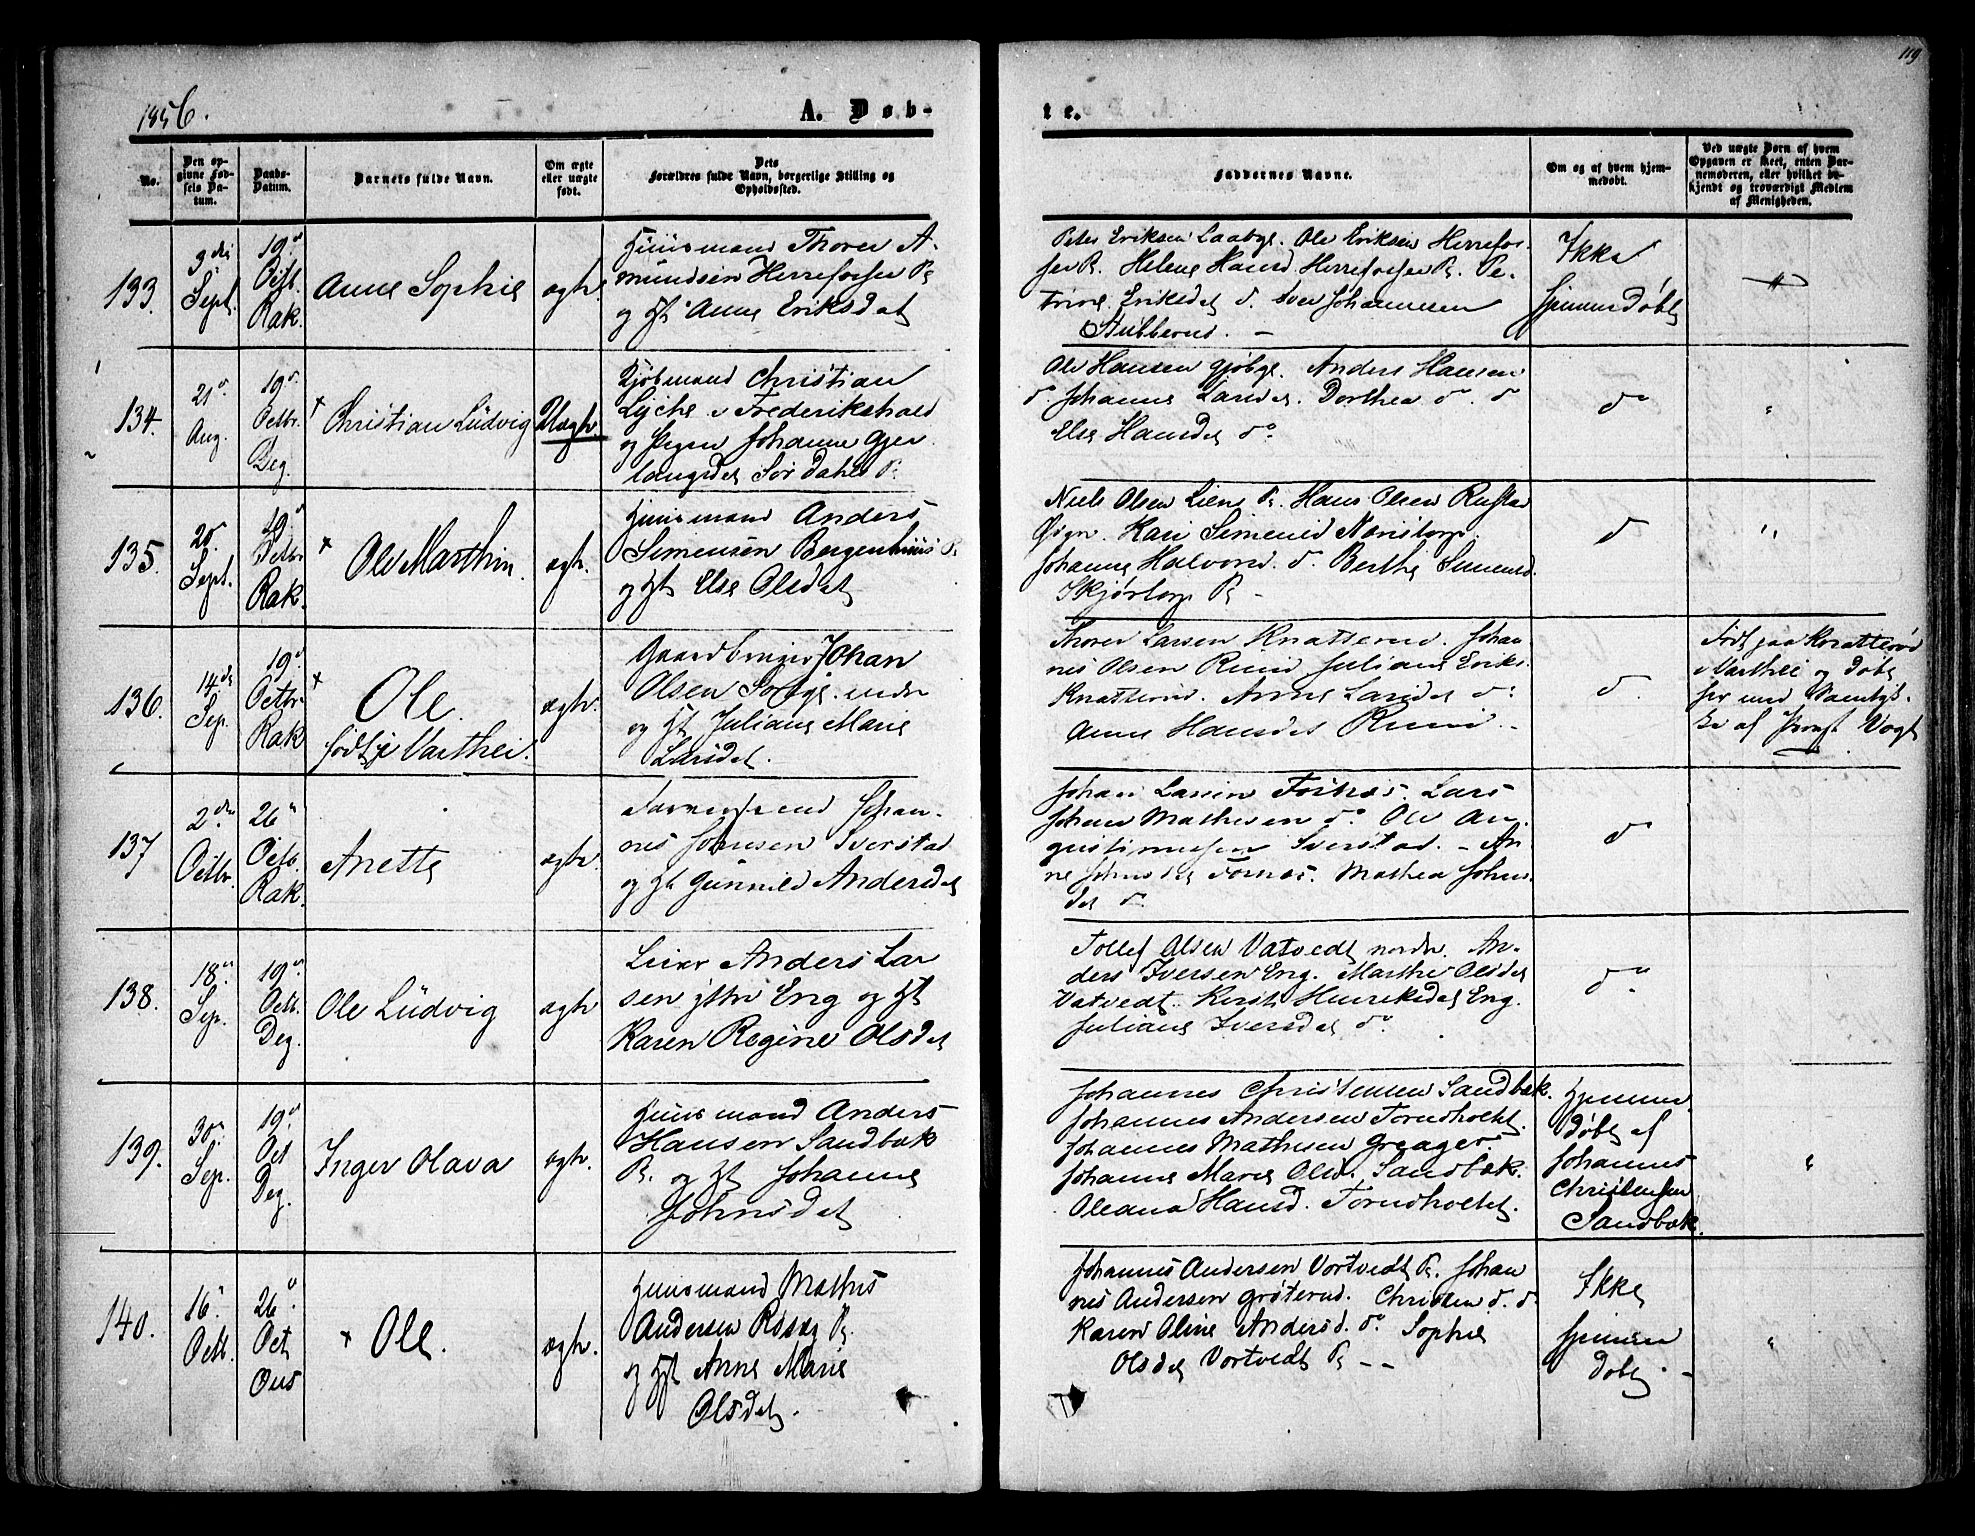 119
1856.
A. Døb-
te.
No.
Den op-
givne Fød-
sels Da-
tum.
Daabs-
Datum.
Barnets fulde Navn.
Om ægte
eller uægte
født.
Dets
Forældres fulde Navn, borgerlige Stilling og
Opholdssted.
Faddernes Navne.
Om og af hvem hjem-
medøbt.
Ved uægte Børn af hvem
Opgaven er skeet, enten Bar-
nemoderen, eller hvilket be-
kjendt og troværdigt Medlem
af Menigheden.
133.
3die
Sept.
19de
Octb.
Rak.
Anne Sophie
ægte.
Huusmand Thorer A-
mundsen Herrefosser
og H. Anne Eriksdat
Peter Eriksen Laabgl. Ole Eriksen Herrefos-
ser P. Helene Hansd. Herrefosser P. Pe-
trine Eriksdat do. Iver Johannesen
Stubberud. -
Ikke
hjemmedøbt
"
134.
21de
Aug.
19de
Octbr.
Deg.
Christian Lüdvig
Uægte
Kjøbmand Christian
Lyche i Frederikshald
og Pigen Johanne Gjer
langsdat Sør Dahl P.
Ole Hansen Gjøbgl. Anders Hansen
do. Johanne Larsdat. Dorthea do. do
Else Hansdat do
do
"
135.
20.
Sept.
19de
Octbr
Rak.
Ole Marthin.
ægte.
Huusmand Anders
Simensen Borgenhuus P.
og H. Else Olsdat
Niels Olsen Liene P. Hans Olsen Rustad
Kari Simensd
Johanne Halvorsd. do. Berthe Simensd.
Skjørtorp P. -
do
"
136.
14de
Sep.
19de
Octbr
Rak
Ole.
født i Varthei.
ægte.
Gaardbruger Johan
Olsen
og H. Juliane Marie
Larsdat.
Thorer Larsen Knatterud. Johan-
nes Olsen Ruud Juliane Eriks.
Knatterud. Anne Larsdat do:
Anne Hansdat Ruud. -
do.
Født paa Knatterud
Varthei og døbt
her med Samtyk-
ke af Provst Vogt
137
2den
Octbr.
26de
Octb.
Rak.
Anette
ægte.
Johan-
nes Johnsen Sverstad
og H. Gunnild Andersdat
Johan Larsen Fornæs. Lars
Johan Mathisen do. Ole Au-
gustinussen Sverstad. - An-
ne Johnsdat Fornæs. Mathea Johns
dat do
do
138.
18de
Sep.
19de
Octb.
Deg.
Ole Lüdvig
ægte
Leier Anders Lar
sen yttre Eng og H.
Karen Regine Olsdat
Tollef Olsen Vatvedt nordre. An-
ders Iversen Eng. Marthe Olsdat
Vatvedt. Kersti Henriksdat Eng.
Juliane Iversdat do
do
139.
30te
Sep.
19de
Oct
Deg.
Inger Olava
ægte.
Huusmand Anders
Hansen Sandbæk
P. og H. Johanne
Johnsdat
Johannes Christensen Sandbæk.
Johannes Andersen Tornholtet.
Johannes Mathisen Greager
Johanne Marie Olsd. Sandbæk.
Oleana Hansd. Tornholtet.
Hjemme-
døbt af
Johannes
Christensen
Sandbæk
"
140.
16.
Octb.
26de
Oct
Ous
Ole.
ægte.
Huusmand Mathis
Andersen Rosæg P.
og H. Anne Marie
Olsdat.
Johannes Andersen Vortvedt P. Johan
nes Andersen Grøterud. Christen do. do.
Karen Oline Andersd. do. Sophie
Olsdat Vortvedt P. --
Ikke
hjemme
døbt. -
"